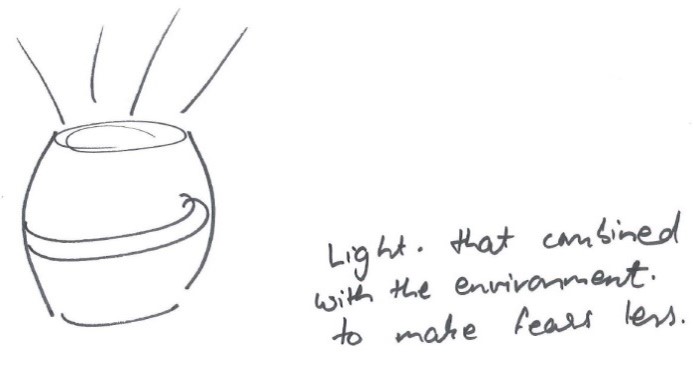 Light. that combined
with the environment.
to make fears less.